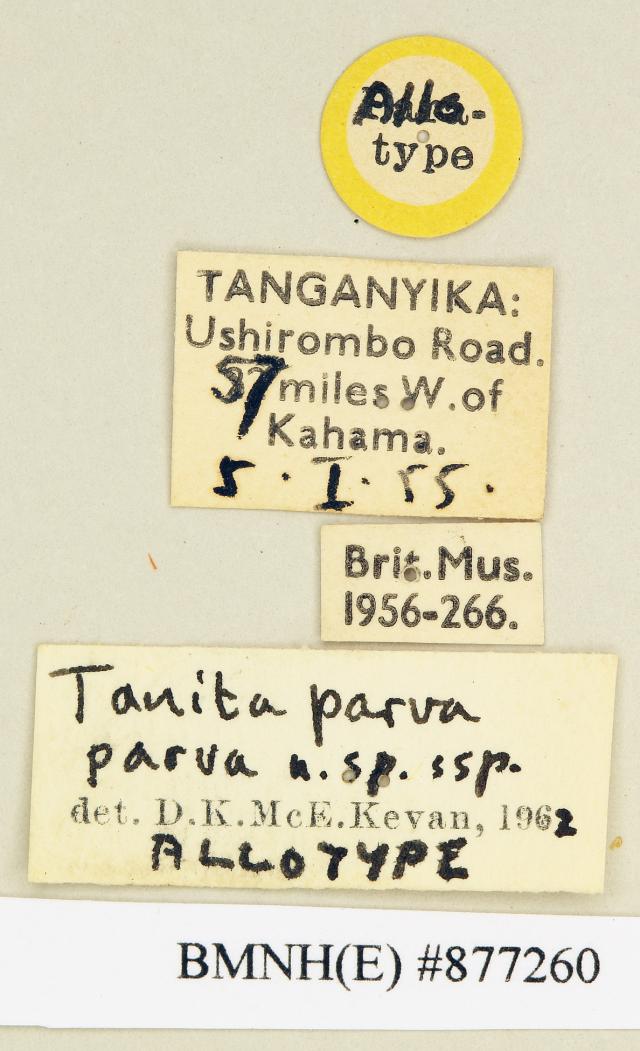 Allo-
type
TANGANYIKA:
Ushirombo Road.
57 miles W. of
Kahama.
5. I. 55.
Brit. Mus.
1956-266.
Tanita parva
parva n. sp. ssp.
det. D.K.McE.Kevan, 1962
ALLOTYPE
BMNH(E) #877260